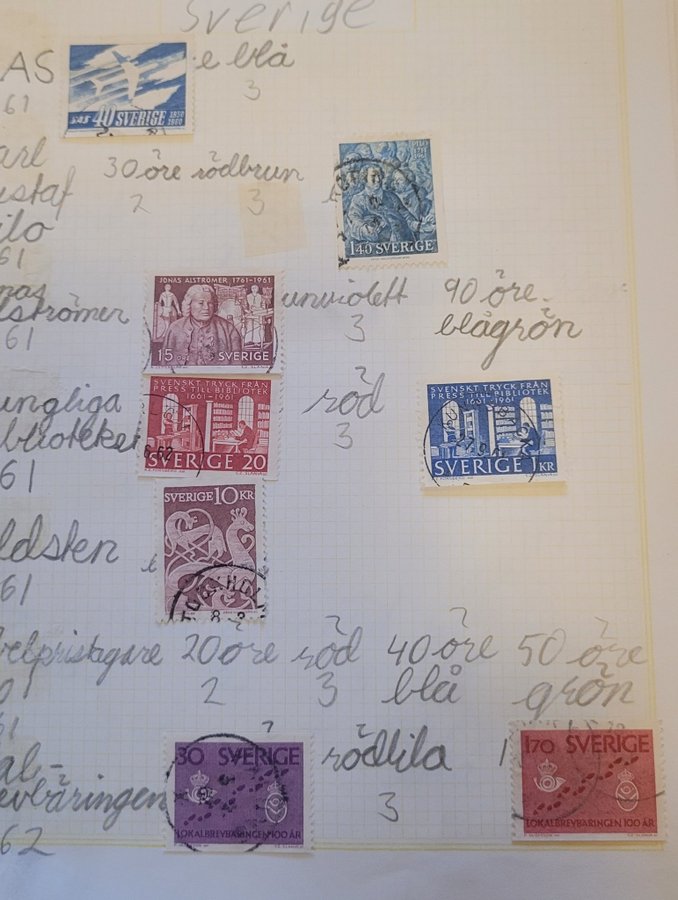 Sverige
AS
e blå
61
3
SAS 40 SVERIGE 1950
1960
arl
30 öre rödbrun
ustaf
2
3
ilo
61
1.40 SVERIGE
JONAS ALSTRÖMER 1761-1961
15 SVERIGE
nas
unviolett
90 öre
lströmer
3
blågrön
61
SVENSKT TRYCK FRÅN
PRESS TILL BIBLIOTEK
1661-1961
SVERIGE 20
ungliga
röd
iblioteket
3
61
SVENSKT TRYCK FRÅN
PRESS TILL BIBLIOTEK
1661-1961
SVERIGE 1 KR
SVERIGE 10 KR
ldsten
61
belpristagare
20 öre
röd
40 öre
50 öre
2
3
blå
grön
61
30 SVERIGE
LOKALBREVBÄRINGEN 100 ÅR
al-
rödlila
evbäringen
3
62
170 SVERIGE
LOKALBREVBÄRINGEN 100 ÅR